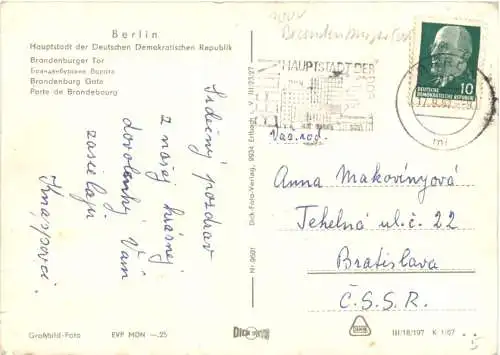 Berlin
Hauptstadt der Deutschen Demokratischen Republik
Brandenburger Tor
Бранденбургские Ворота
Brandenburg Gate
Porte de Brandebourg
Srdečný pozdrav
z našej krásnej
dovolenky Vám
zasielajú
Knappová.
Großbild-Foto
EVP MDN —.25
Nr. 0601
Dick-Foto-Verlag, 9934 Erlbach i. V.
DICK
HAUPTSTADT DER
DEUTSCHE
DEMOKRATISCHE REPUBLIK
10
Váž. rod.
Anna Makovínyová
Tehelná ul. č. 22
Bratislava
Č.S.S.R.
III/18/197 K 1/67